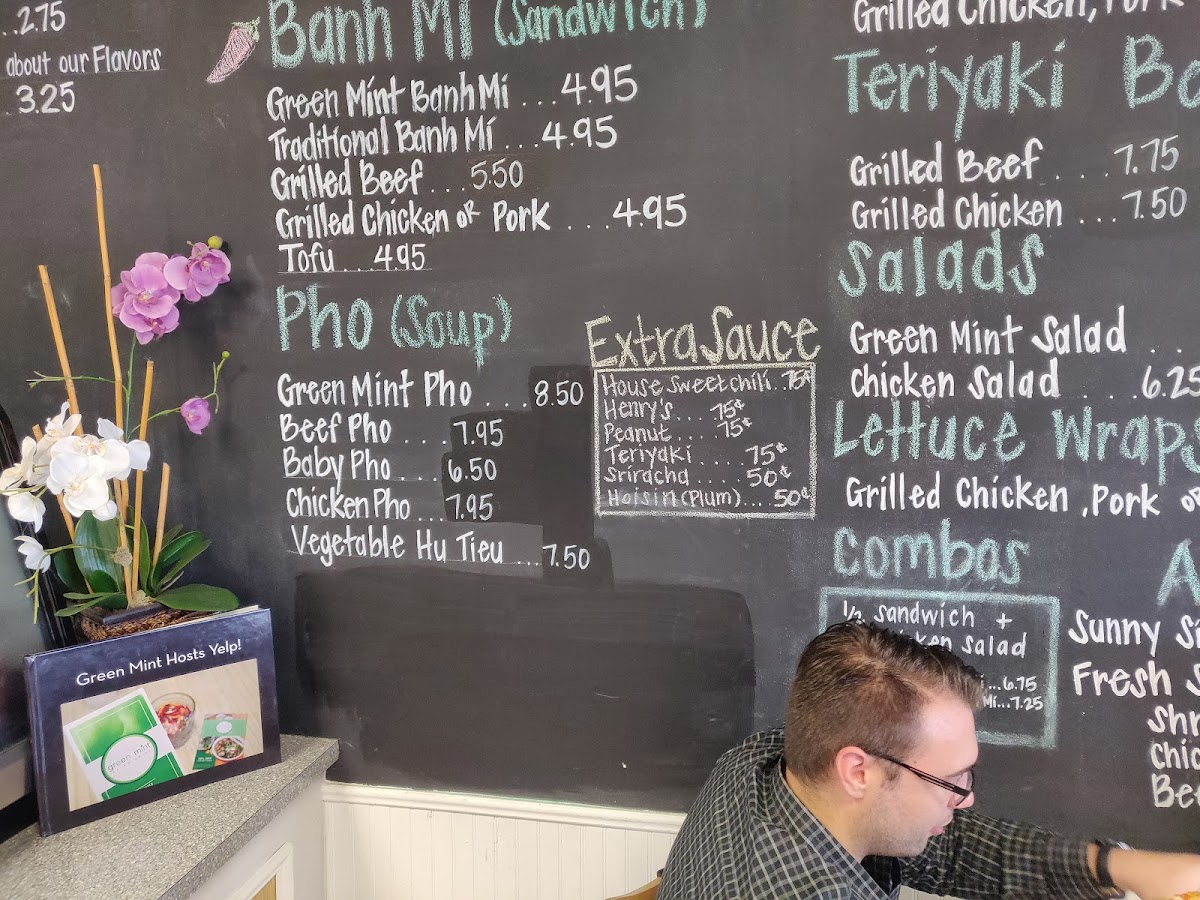 ..2.75
about our Flavors
3.25
Banh Mi (Sandwich)
Green Mint Banh Mi ...4.95
Traditional Banh Mi ....4.95
Grilled Beef ...5.50
Grilled Chicken or Pork ....4.95
Tofu ...4.95
Pho (Soup)
Green Mint Pho ....8.50
Beef Pho ....7.95
Baby Pho ....6.50
Chicken Pho ...7.95
Vegetable Hu Tieu ...7.50
Extra Sauce
House Sweet chili..75¢
Henry's...75¢
Peanut....75¢
Teriyaki ....75¢
Sriracha ....50¢
Hoisin (Plum)....50¢
Grilled Chicken, Pork
Teriyaki
Grilled Beef ....7.75
Grilled Chicken ...7.50
Salads
Green Mint Salad ..
Chicken Salad ....6.25
Lettuce Wraps
Grilled Chicken, Pork or
Combos
1/2 Sandwich +
Salad
...6.75
...7.25
Sunny
Fresh
Green Mint Hosts Yelp!
green mint